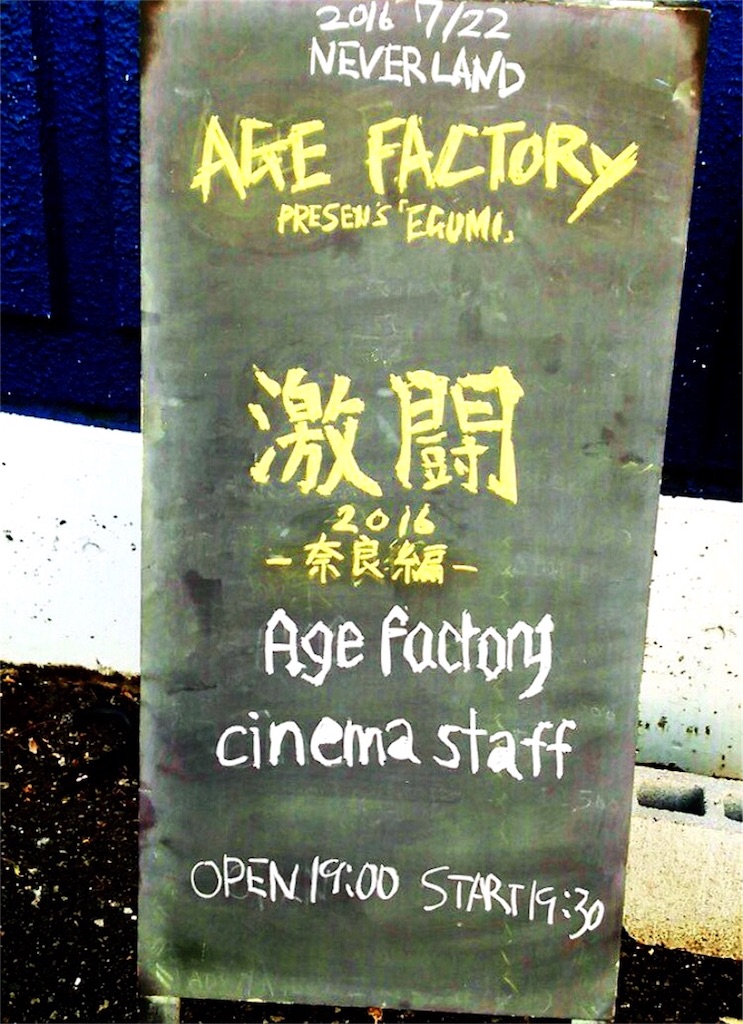 2016 7/22
NEVERLAND
AGE FACTORY
PRESEN'S「EGUMI」
激闘
2016
-奈良編-
Age factory
cinema staff
OPEN 19:00 START 19:30